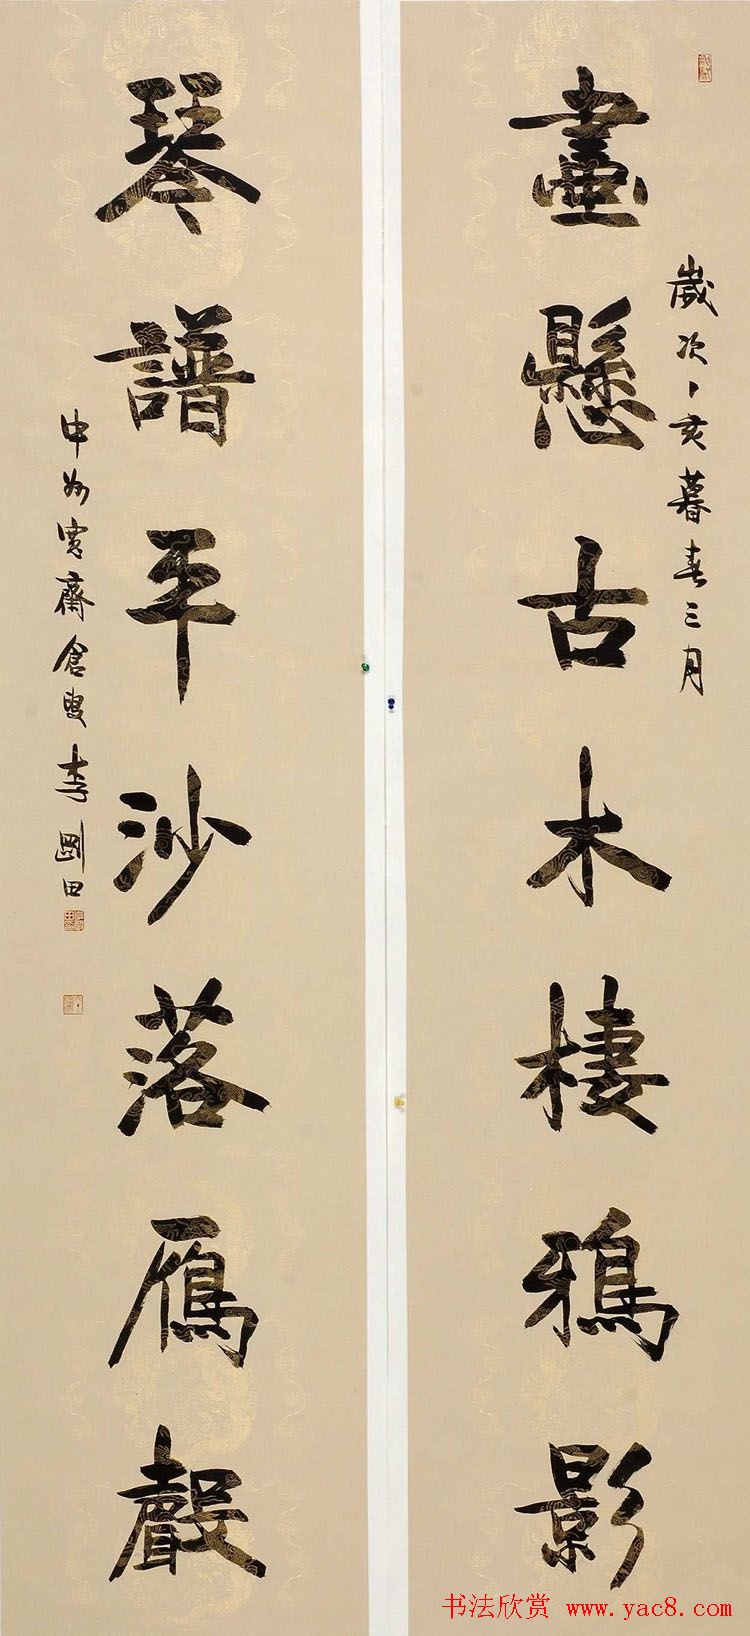 畫懸古木棲鴉影
歲次丁亥暮春三月
琴譜平沙落鴈聲
中州寬齋倉叟李剛田
书法欣赏 www.yac8.com